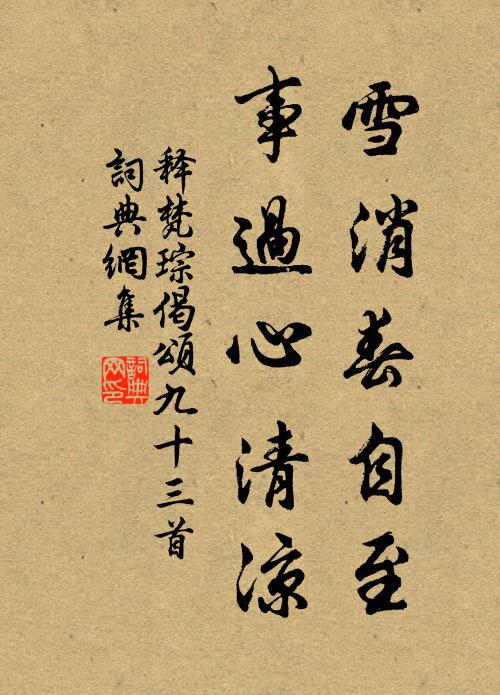 雪消春自至
事過心清涼
释梵琮偈頌九十三首
詞典網集
詞典網印